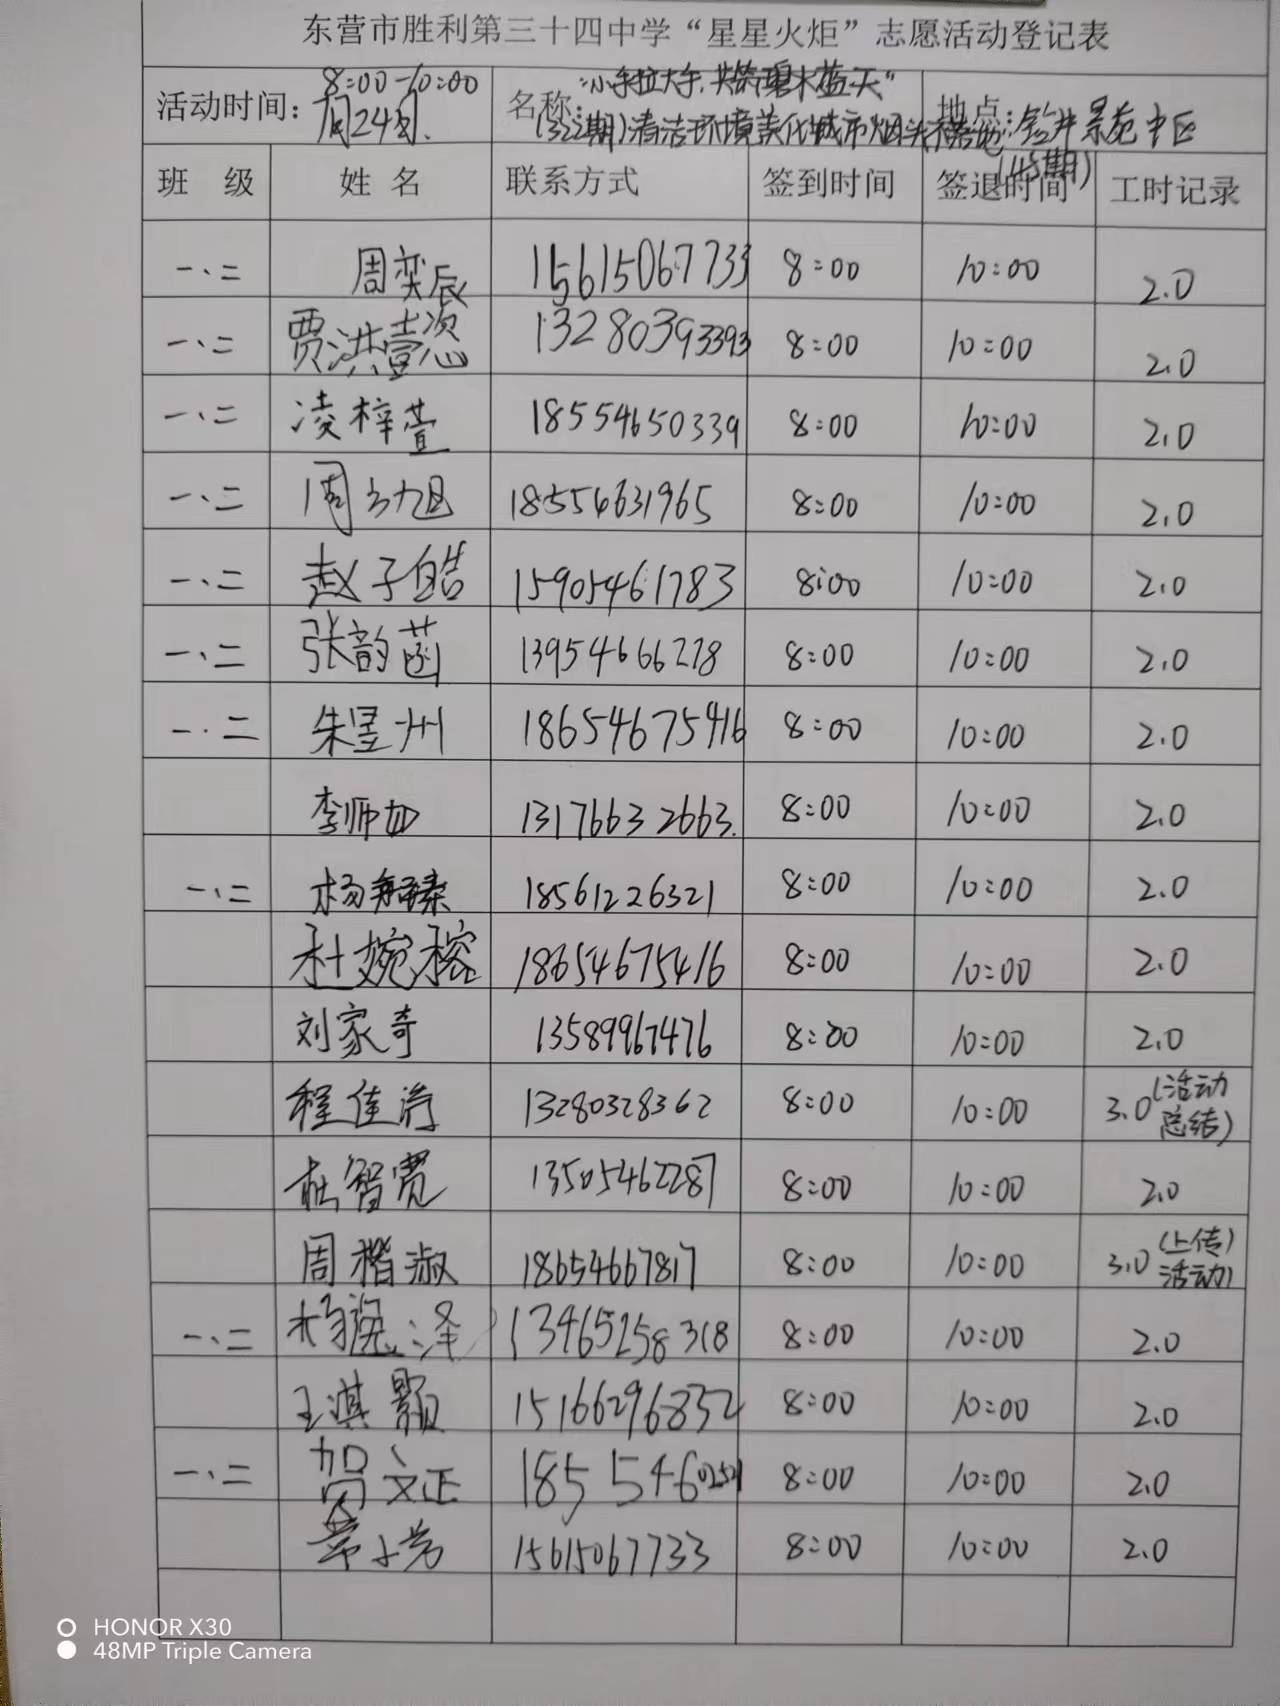 东营市胜利第三十四中学“星星火炬”志愿活动登记表
活动时间： 8:00-10:00 7月24日. 名称： “小手拉大手，共筑碧水蓝天” (323期)清洁环境美化城市烟头不落地 (45期) 地点：金井景苑中区
班 级 姓 名 联系方式 签到时间 签退时间 工时记录
一、二 周奕辰 15615067733 8:00 10:00 2.0
一、二 贾洪壹 13280393393 8:00 10:00 2.0
一、二 凌梓萱 18554650339 8:00 10:00 2.0
一、二 周方旭 18554631965 8:00 10:00 2.0
一、二 赵子皓 15905461783 8:00 10:00 2.0
一、二 张韵菡 13954666278 8:00 10:00 2.0
一.二 朱昱州 18654675416 8:00 10:00 2.0
李师如 13176632663. 8:00 10:00 2.0
一、二 杨臻 18561226321 8:00 10:00 2.0
杜婉榕 18654675416 8:00 10:00 2.0
刘家奇 13589967476 8:00 10:00 2.0
程佳涛 13280328362 8:00 10:00 3.0(活动总结)
杜智宽 13505462287 8:00 10:00 2.0
周楷淑 18654667817 8:00 10:00 3.0(上传活动)
一、二 杨泽 13465258318 8:00 10:00 2.0
王淇颢 15166296832 8:00 10:00 2.0
一、二 贺文正 185546 8:00 10:00 2.0
15615067733 8:00 10:00 2.0
HONOR X30
48MP Triple Camera